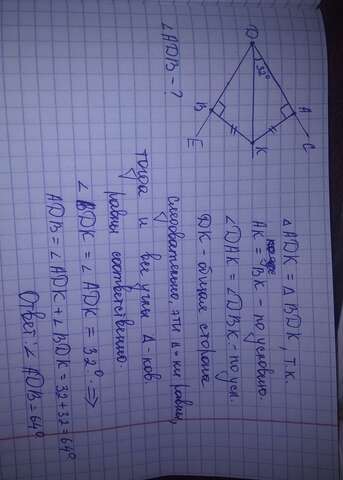 D
32°
A
B
C
E
K
∠ADB - ?
△ADK = △BDK, т.к.
AK = BK - по условию.
∠DAK = ∠DBK - по усл.
DK - общая сторона
Следовательно, эти △-ки равны,
тогда и все углы △-ков
равны соответственно.
∠BDK = ∠ADK = 32°. ⇒
ADB = ∠ADK + ∠BDK = 32 + 32 = 64°
Ответ: ∠ADB = 64°